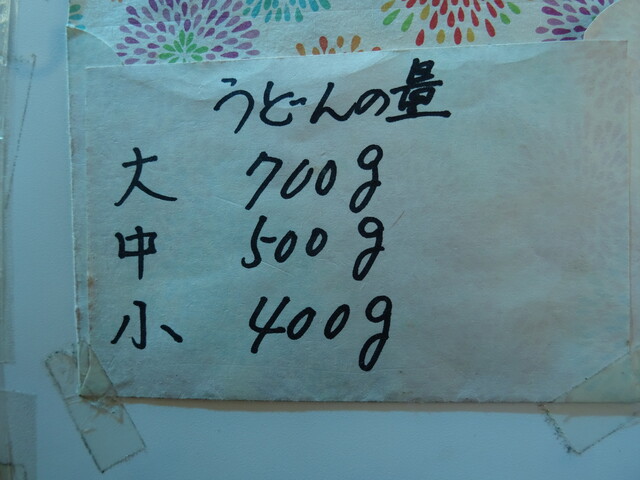 うどんの量
大 700g
中 500g
小 400g